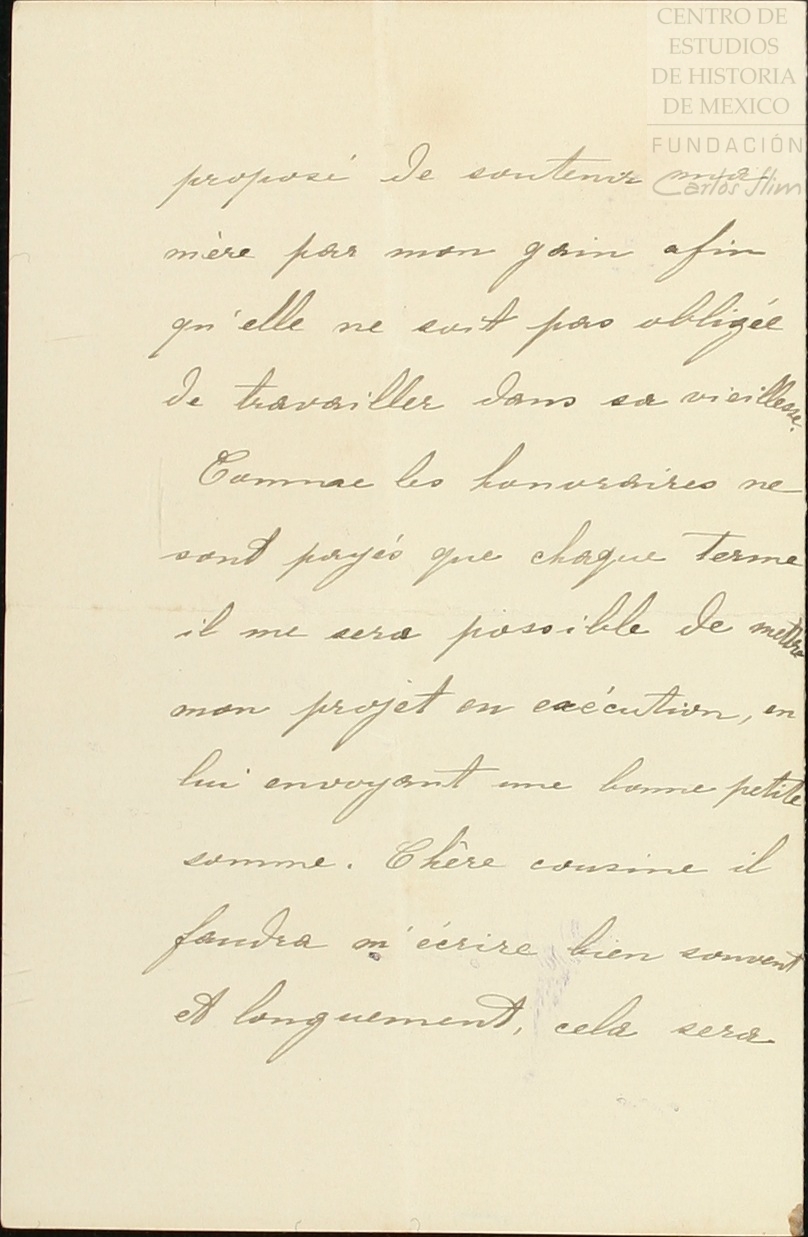 CENTRO DE
ESTUDIOS
DE HISTORIA
DE MEXICO
FUNDACIÓN
Carlos Slim
proposé de soutenir ma
mère par mon gain afin
qu'elle ne soit pas obligée
de travailler dans sa vieillesse.
Comme les honoraires ne
sont payés que chaque terme
il me sera possible de mettre
mon projet en exécution, en
lui envoyant une bonne petite
somme. Chère cousine il
faudra m'écrire bien souvent
et longuement, cela sera